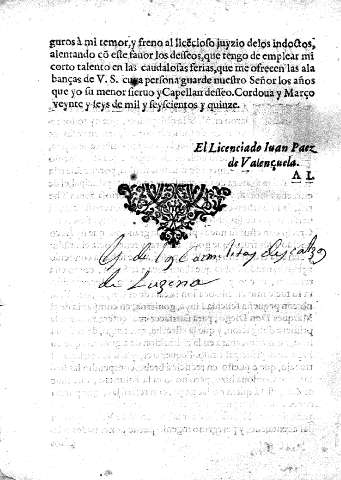 guros à mi temor, y freno al licẽcioso juyzio delos indoctos,
alentando cõ este fauor los desseos, que tengo de emplear mi
corto talento en las caudalosas ferias, que me ofrecen las ala
banças de V. S. cuya persona guarde nuestro Señor los años
que yo su menor sieruo y Capellan desseo. Cordoua y Março
veynte y seys de mil y seyscientos y quinze.
El Licenciado Iuan Paez
de Valençuela.
A L
de los Carmelitas descalços
de Luzena